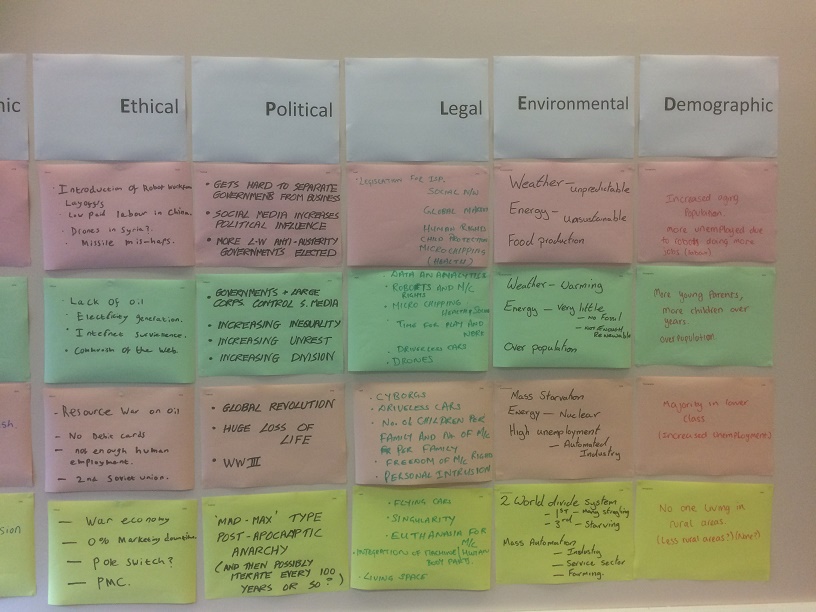 nic
Ethical
Political
Legal
Environmental
Demographic
Introduction of Robot
Layoffs
Low paid labour in China.
Drones in Syria?
Missile mis-haps.
• GETS HARD TO SEPARATE
GOVERNMENT FROM BUSINESS
• SOCIAL MEDIA INCREASES
POLITICAL INFLUENCE
• MORE L-W ANTI-AUSTERITY
GOVERNMENTS ELECTED
LEGISLATION FOR
SOCIAL
GLOBAL
HUMAN RIGHTS
CHILD PROTECTION
MICROCHIPPING
(HEALTH)
Weather - unpredictable
Energy - unsustainable
Food production
Increased aging
Population.
more unemployed due
to robots doing more
jobs
- Lack of oil
• Electricity generation.
• Internet
• of the Web.
• GOVERNMENTS + LARGE
CORPS. CONTROL S. MEDIA
• INCREASING INEQUALITY
• INCREASING UNREST
• INCREASING DIVISION
- DATA ANALYTICS
• ROBOTS AND M/C
RIGHTS
• MICRO CHIPPING
• TIME FOR PLAY AND
WORK
• DRIVERLESS CARS
• DRONES
Weather - Warming
Energy - Very little
- no Fossil
- not Enough
Renewable
Over population
More young Parents,
more children over
years.
overpopulation.
sh.
- Resource War on oil
- No Debit cards
- not enough human
employment.
- 2nd Soviet union.
• GLOBAL REVOLUTION
• HUGE LOSS OF
LIFE
• WWIII
• CYBORGS
• DRIVELESS CARS
• No. of CHILDREN PER
FAMILY AND No. OF M/C
PER FAMILY
• FREEDOM OF M/C RIGHTS
• PERSONAL INTRUSION
Mass Starvation
Energy - Nuclear
High unemployment
- Automated
Industry
Majority in lower
class
(Increased Unemployment)
sion
- War economy
- 0% Marketing downtime
- Pole switch?
- PMC.
'MAD-MAX' TYPE
POST-APOCALPTIC
ANARCHY
(AND THEN POSSIBLY
ITERATE EVERY 100
YEARS OR SO?)
• FLYING CARS
• SINGULARITY
• EUTHANASIA FOR
M/C
• INTEGRATION OF MACHINE/HUMAN
BODY PARTS.
• LIVING SPACE
2 World divide system
- 1st - many struggling
- 3rd - Starving
Mass Automation
- Industry
- Service sector
- Farming.
No one Living in
rural areas.
(Less rural areas?)(None?)